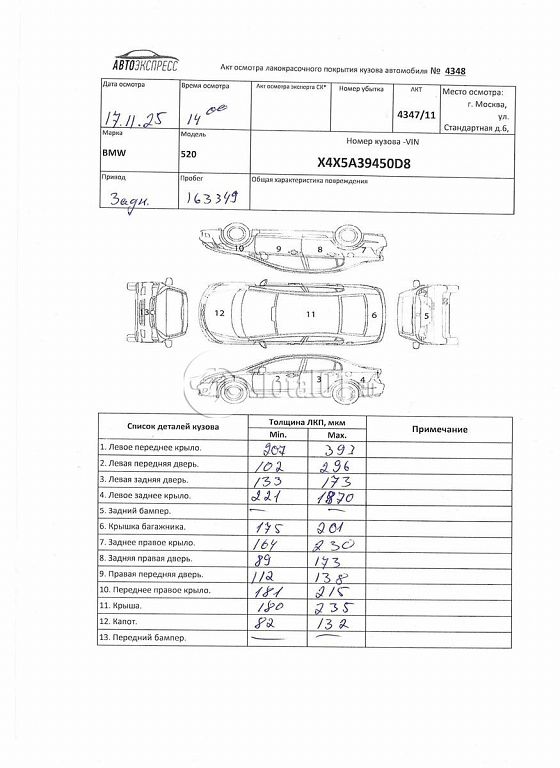 АВТОЭКСПРЕСС
Акт осмотра лакокрасочного покрытия кузова автомобиля № 4348
Дата осмотра Время осмотра Акт осмотра эксперта СК* Номер убытка АКТ Место осмотра:
17.11.25 14 00 4347/11 г. Москва,
ул.
Стандартная д.6,
Марка Модель Номер кузова -VIN
BMW 520 X4X5A39450D8
Привод Пробег Общая характеристика повреждения
Задн. 163349
10 9 8 7
13 12 11 6 5
1 2 3 4
Список деталей кузова Толщина ЛКП, мкм Примечание
Min. Max.
1. Левое переднее крыло. 207 393
2. Левая передняя дверь. 102 296
3. Левая задняя дверь. 133 173
4. Левое заднее крыло. 221 1870
5. Задний бампер. — —
6. Крышка багажника. 175 201
7. Заднее правое крыло. 164 230
8. Задняя правая дверь. 89 173
9. Правая передняя дверь. 112 138
10. Переднее правое крыло. 181 215
11. Крыша. 180 235
12. Капот. 82 132
13. Передний бампер. — —